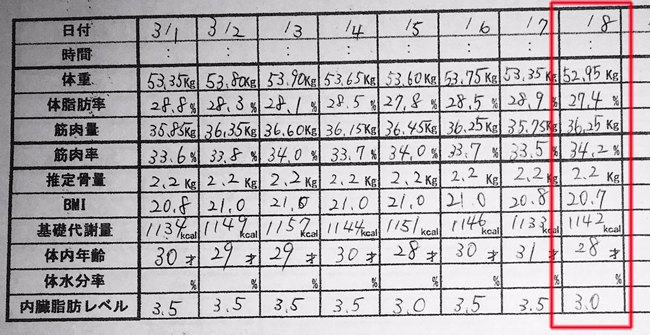 日付 3/1 3/2 /3 /4 /5 /6 /7 /8
時間 : : : : : : : :
体重 53.35Kg 53.80Kg 53.90Kg 53.65Kg 53.60Kg 53.75Kg 53.35Kg 52.95Kg
体脂肪率 28.8% 28.3% 28.1% 28.5% 27.8% 28.5% 28.9% 27.4%
筋肉量 35.85Kg 36.35Kg 36.60Kg 36.15Kg 36.45Kg 36.25Kg 35.75Kg 36.25Kg
筋肉率 33.6% 33.8% 34.0% 33.7% 34.0% 33.7% 33.5% 34.2%
推定骨量 2.2Kg 2.2Kg 2.2Kg 2.2Kg 2.2Kg 2.2Kg 2.2Kg 2.2Kg
BMI 20.8 21.0 21.0 21.0 21.0 21.0 20.8 20.7
基礎代謝量 1134kcal 1149kcal 1157kcal 1144kcal 1151kcal 1146kcal 1133kcal 1142kcal
体内年齢 30才 29才 29才 30才 28才 30才 31才 28才
体水分率 % % % % % % % %
内臓脂肪レベル 3.5 3.5 3.5 3.5 3.0 3.5 3.5 3.0